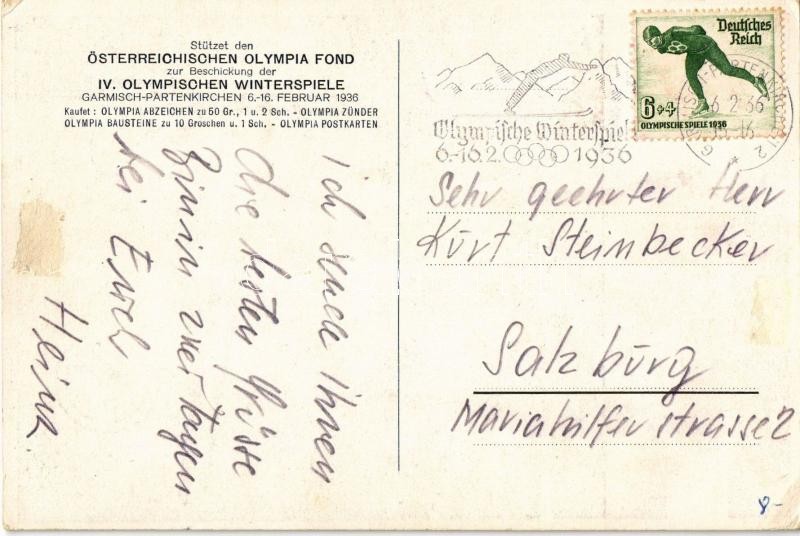 Stützet den
ÖSTERREICHISCHEN OLYMPIA FOND
zur Beschickung der
IV. OLYMPISCHEN WINTERSPIELE
GARMISCH-PARTENKIRCHEN 6.-16. FEBRUAR 1936
Kaufet : OLYMPIA ABZEICHEN zu 50 Gr., 1 u. 2 Sch. - OLYMPIA ZÜNDER
OLYMPIA BAUSTEINE zu 10 Groschen u. 1 Sch. - OLYMPIA POSTKARTEN
Ich sende Ihnen
die besten Grüsse
Bin in zwei Tagen
bei Euch
Heinz
Deutsches
Reich
6+4
OLYMPISCHE SPIELE 1936
Olympische Winterspiel
6.-16.2. 1936
6 2 36
Sehr geehrter Herr
Kurt Steinbecker
Salzburg
Mariahilferstrasse 2
8-